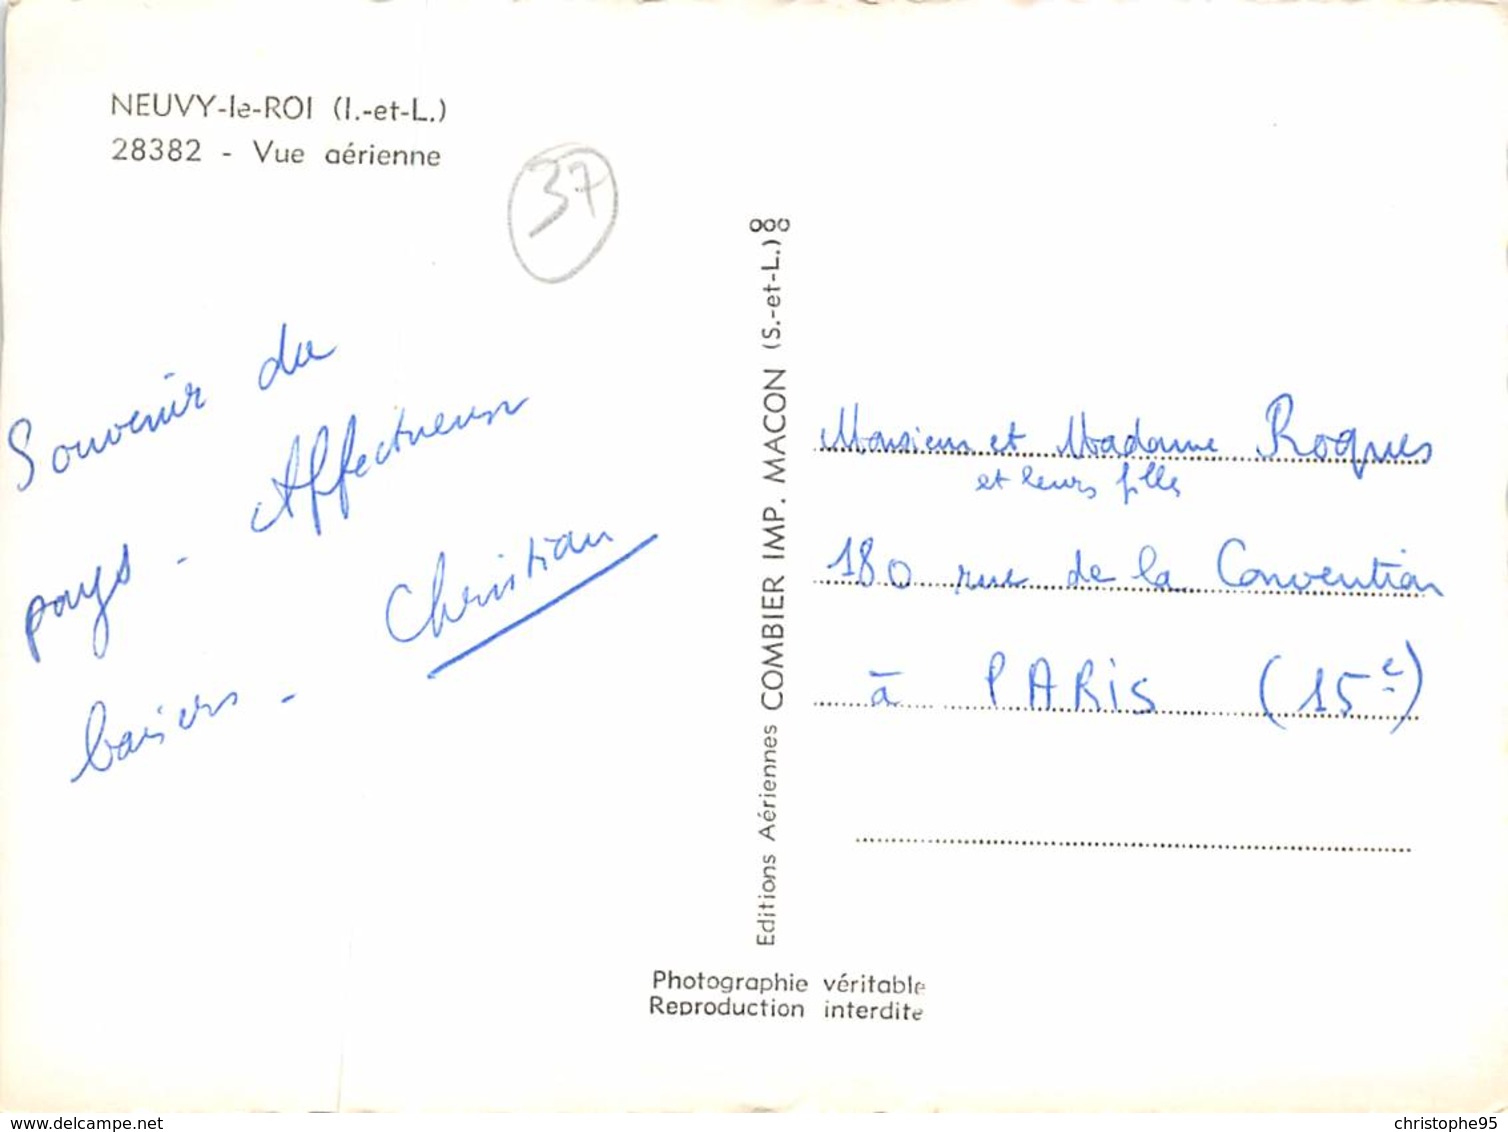 NEUVY-le-ROI (I.-et-L.)
28382 - Vue aérienne
37
Souvenir du
pays - Affectueux
baisers - Christian
Editions Aériennes COMBIER IMP. MACON (S.-et-L.)
Monsieur et Madame Roques
et leurs filles
180 rue de la Convention
à PARIS (15e)
Photographie véritable
Reproduction interdite
delcampe.net
christophe95